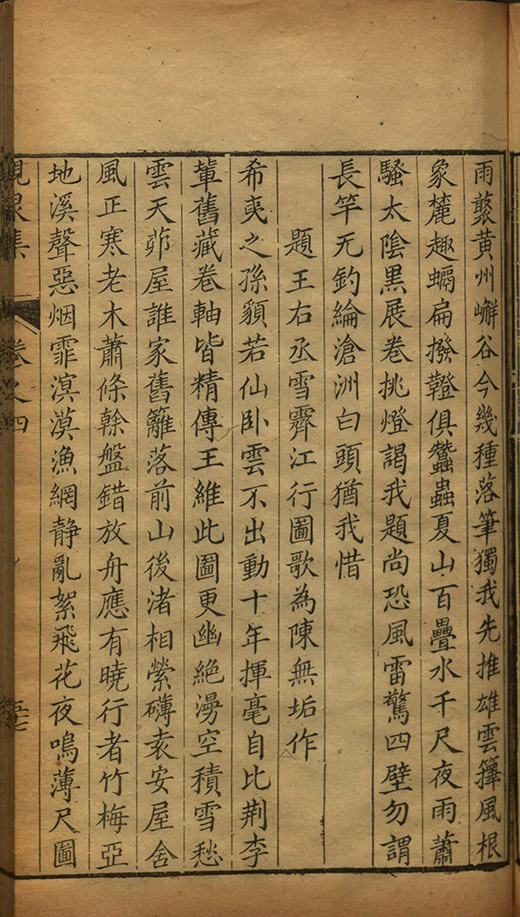 雨褧黄州嶰谷今幾種落筆獨我先推雄雲籜風根
象麓趣蝸扁撥韃俱蠶蟲夏山百疊水千尺夜雨蕭
騷太陰黒展巻挑燈謁我題尚恐風雷驚四壁勿謂
長竿无釣綸滄洲白頭猶我惜
題王右丞雪霽江行圖歌為陳無垢作
希夷之孫貌若仙卧雲不出動十年揮毫自比荆李
軰舊藏巻軸皆精傳王維此圖更幽絶漫空積雪愁
雲天茆屋誰家舊籬落前山後渚相縈礴袁安屋舍
風正寒老木蕭條榦盤錯放舟應有曉行者竹梅亞
地溪聲惡烟霏溟漠漁網静亂絮飛花夜鳴薄尺圖
集 巻之四